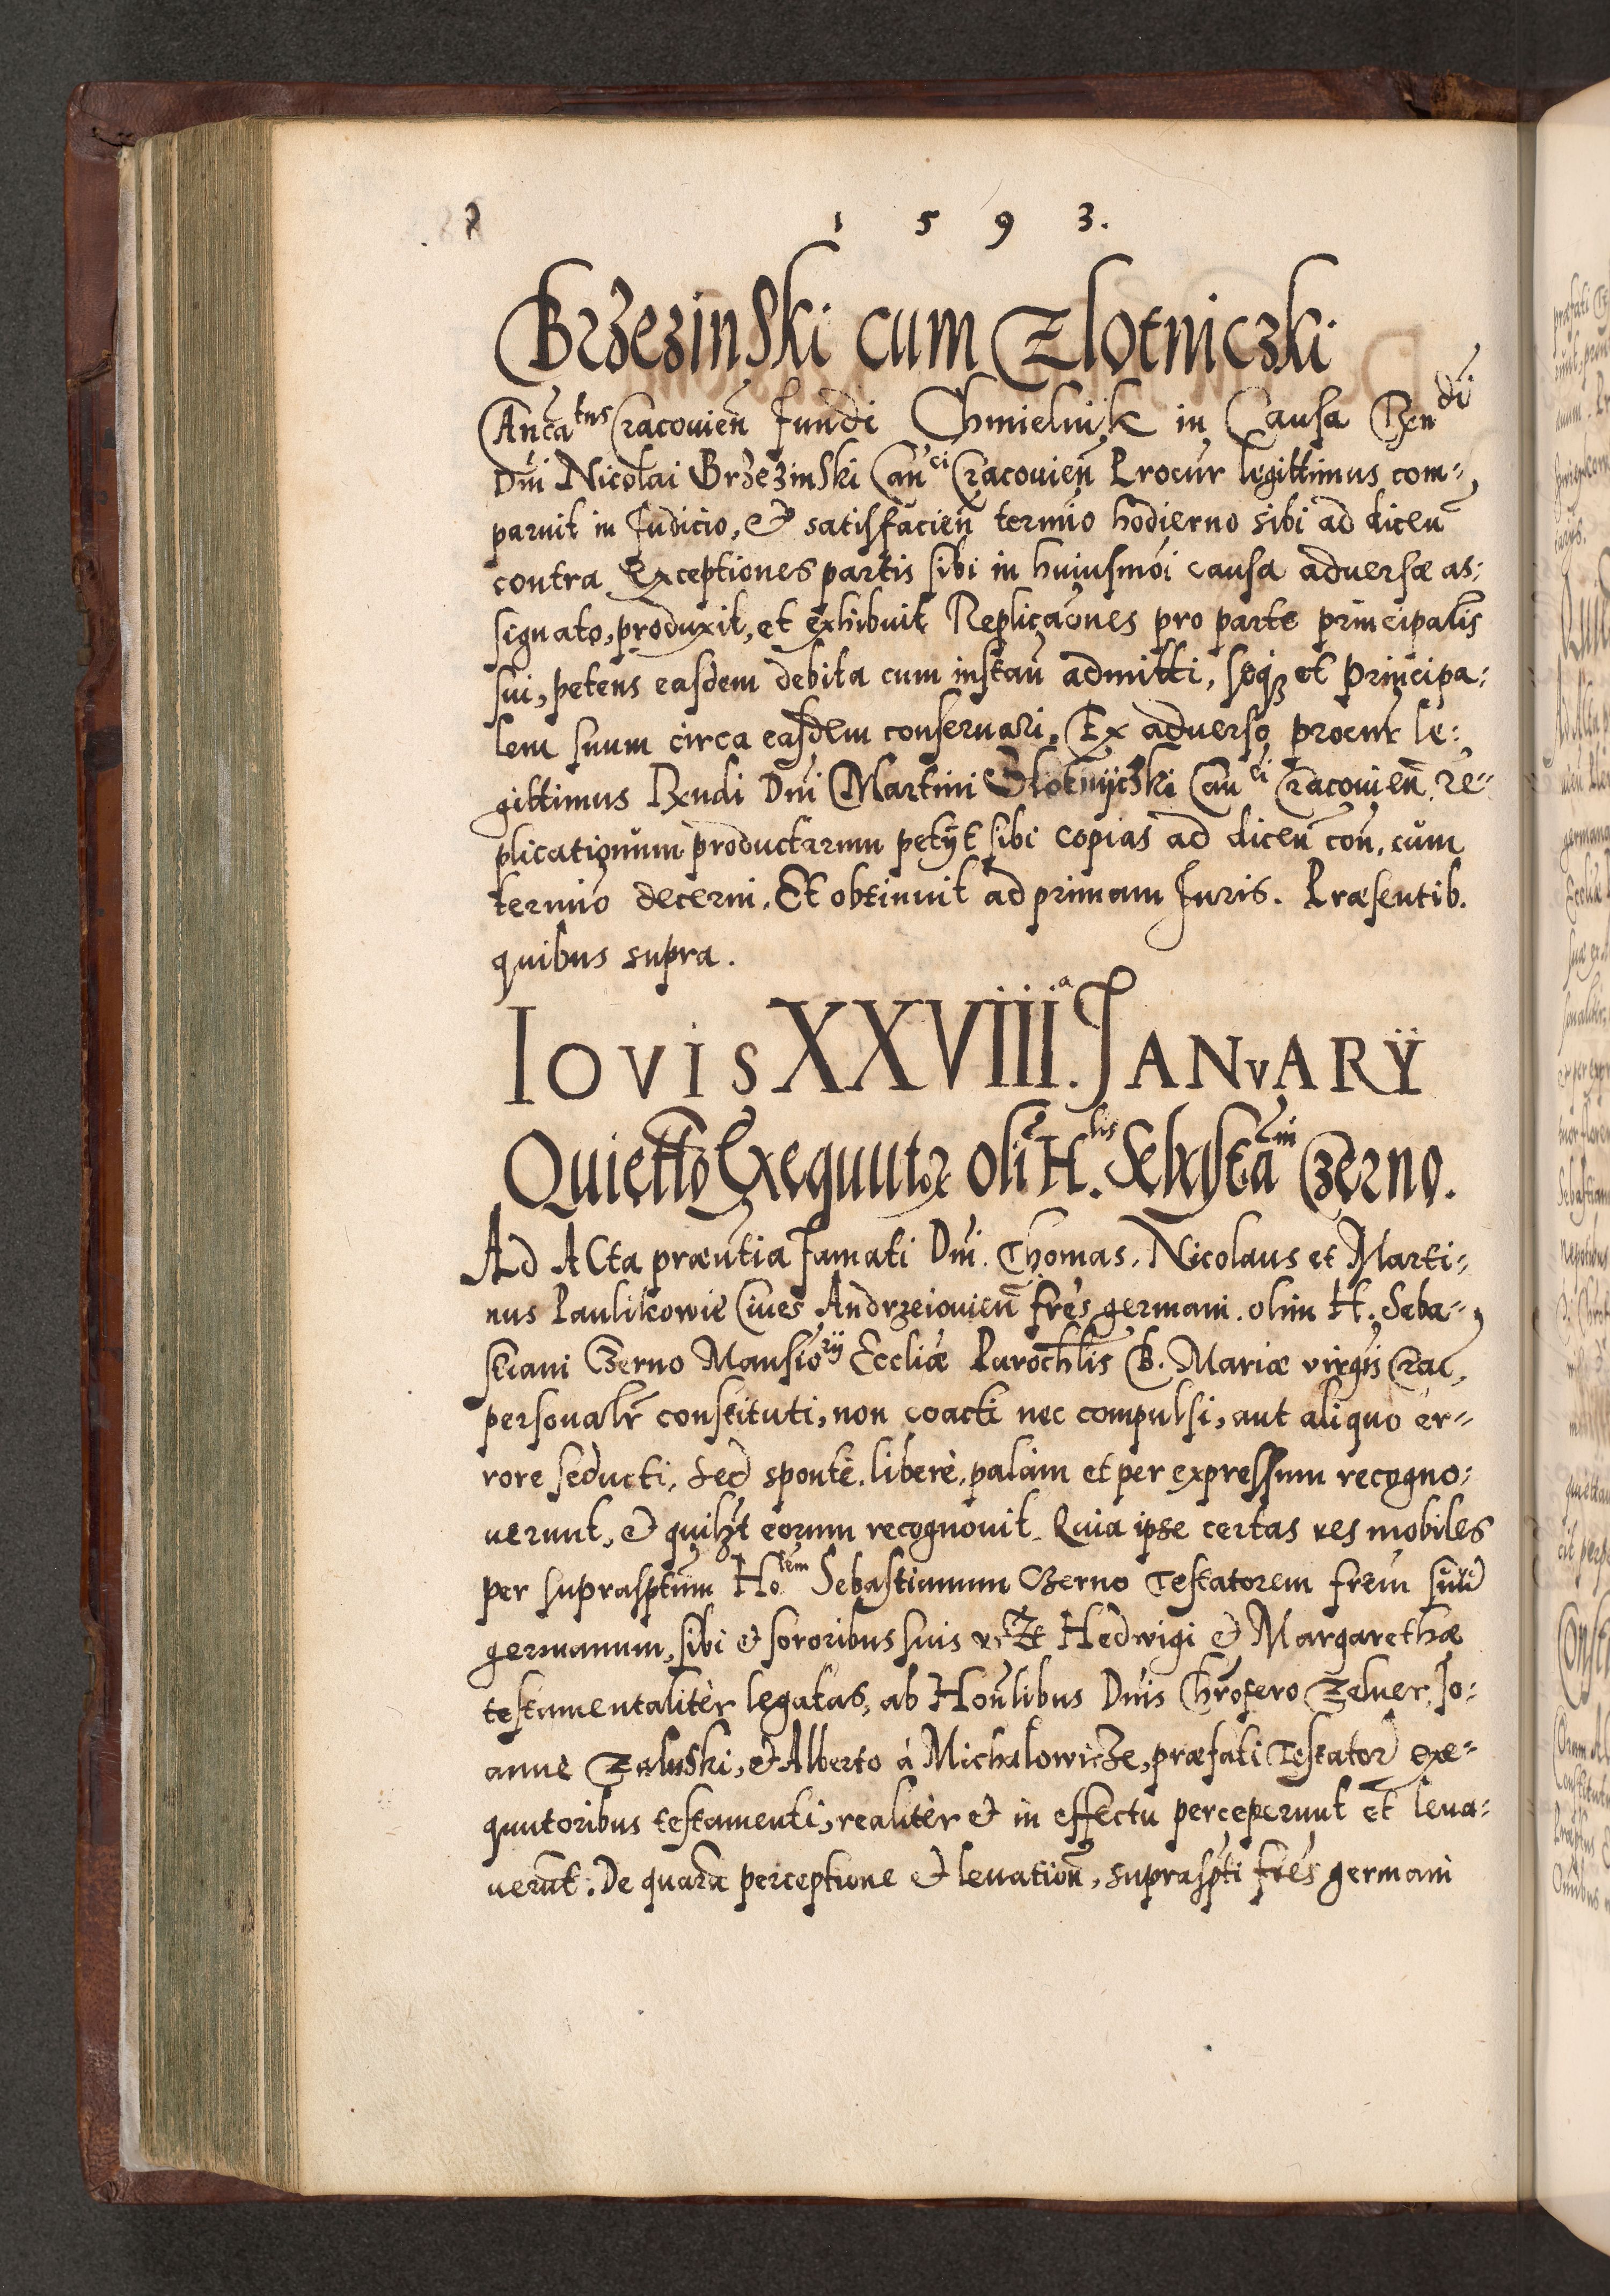 1593.
Brzezinski cum Zlotniczki
Ancatus Cracovien̄ fundi Chmielnik in Causa Rendi
Dni Nicolai Brzezinski Canci Cracovien̄ Procur legittimus com-
paruit in Iudicio, et satisfacien̄ termīo hodierno sibi ad dicen̄
contra Exceptiones partis sibi in huiusmōi causa adversæ as-
signato, produxit, et exhibuit Replicāones pro parte principalis
sui, petens easdem debita cum instan̄ admitti, seqꝫ et Principa-
lem suum circa easdem conservari. Ex adverso procur le-
gittimus Rxndi Dni Martini Zlotnyczki Canci Cracovien̄. re-
plicationum productarum petÿt sibi copias ad dicen̄ con̄, cum
termīo decerni. Et obtinuit ad primam Iuris. Præsentib.
quibus supra.
IOVIS XXVIIIIa. IANVARŸ
Quiettō Exequutor̄ oli H.lis Sebastāni Czerno.
Ad Acta præn̄tia famati Dni. Thomas, Nicolaus et Marti-
nus Paulikowie Cives Andrzeiovien̄ frēs germani. olim H. Seba-
stiani Czerno Mansiorij Eccliæ Parochlis B. Mariæ virgīs Crac,
personalr̄ constituti, non coacti nec compulsi, aut aliquo er-
rore seducti, sed sponte, liberè, palàm et per expressum recogno-
verunt, et quilibt eorum recognovit. Quia ipse certas res mobiles
per suprasptum Ho.lem Sebastianum Czerno Testatorem frem̄ suū
germanum, sibi et sororibus suis vrꝫ Hedwigi et Margarethæ
testamentalitèr legatas, ab Hon̄libus Dnis Chrōfero Zelner, Jo-
anne Zaluski, et Alberto à Michalowicze, præfati Testator̄ exe-
quutoribus testamenti, realitèr et in effectu perceperunt et leva-
verūt. De quarā perceptione et levation̄, supraspti frēs germani